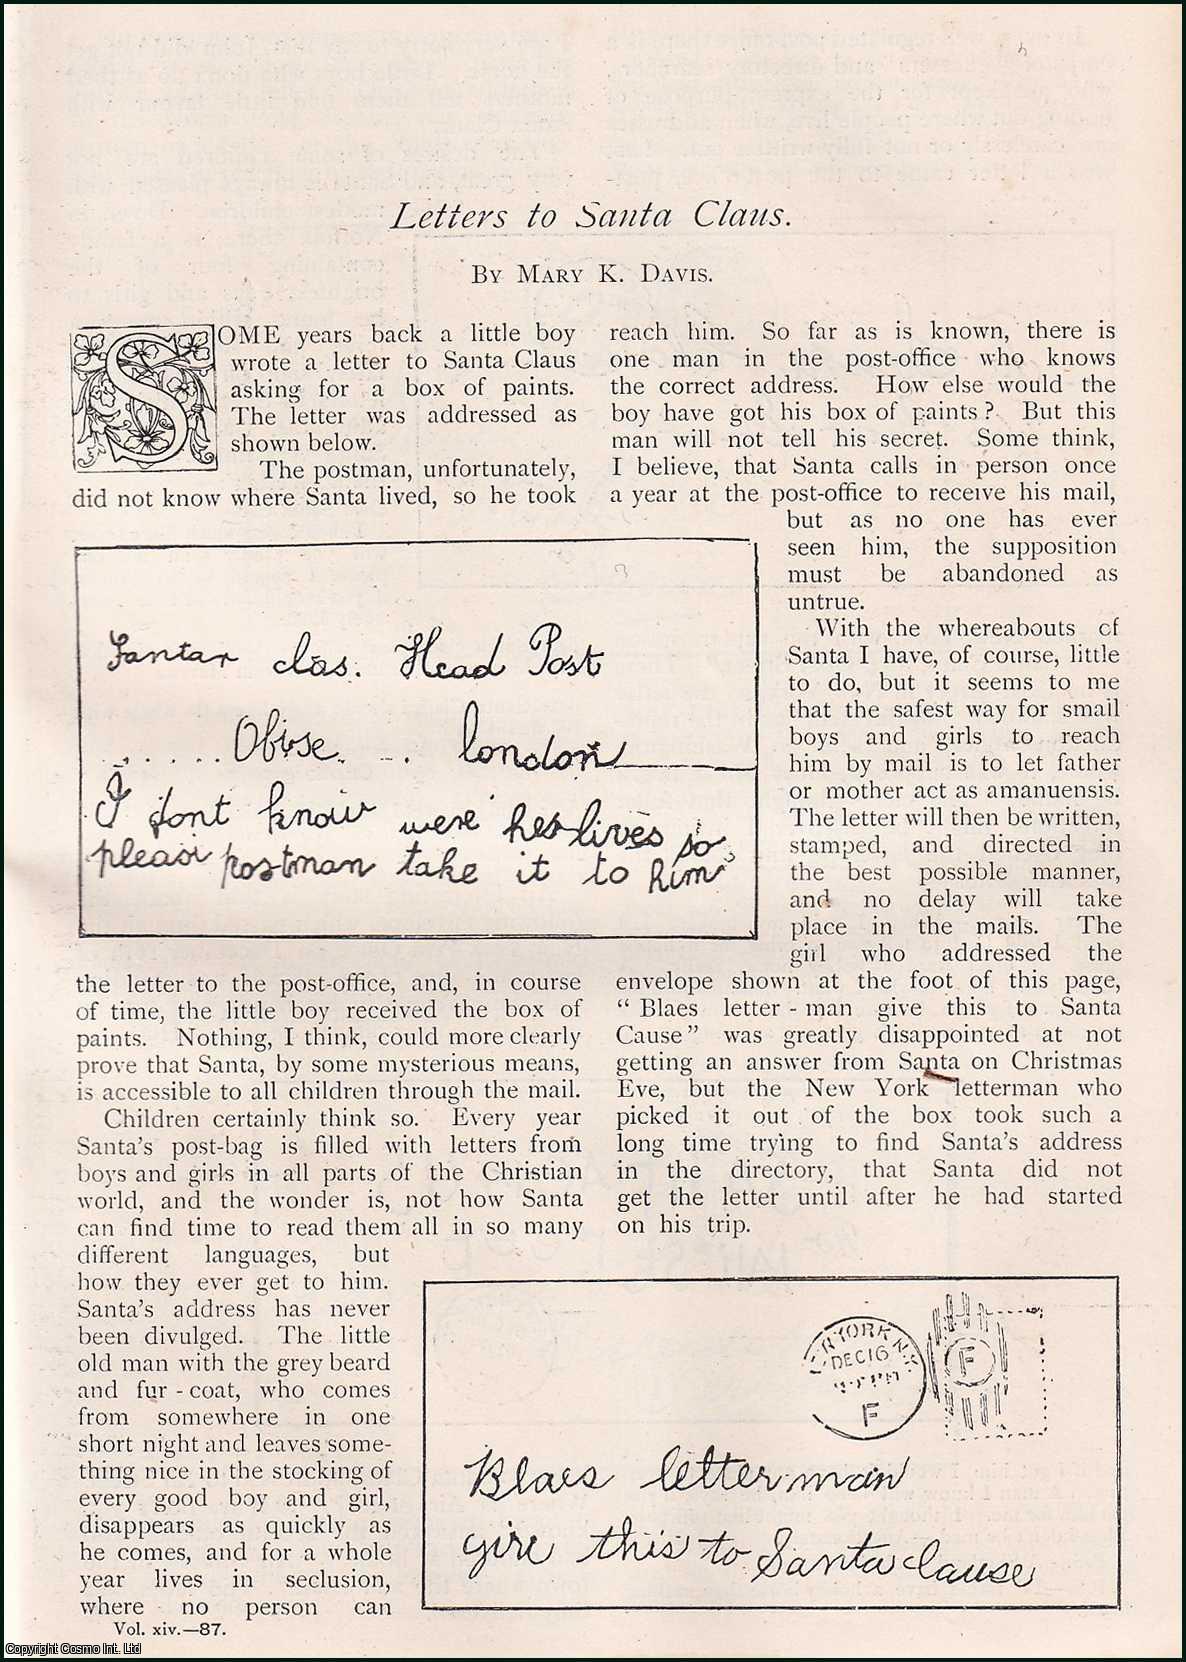 Letters to Santa Claus.
BY MARY K. DAVIS.
SOME years back a little boy
wrote a letter to Santa Claus
asking for a box of paints.
The letter was addressed as
shown below.
The postman, unfortunately,
did not know where Santa lived, so he took
Santar clos. Head Post
......Obise. . . london
I dont know were hes lives so
pleasi postman take it to him
the letter to the post-office, and, in course
of time, the little boy received the box of
paints. Nothing, I think, could more clearly
prove that Santa, by some mysterious means,
is accessible to all children through the mail.
Children certainly think so. Every year
Santa's post-bag is filled with letters from
boys and girls in all parts of the Christian
world, and the wonder is, not how Santa
can find time to read them all in so many
different languages, but
how they ever get to him.
Santa's address has never
been divulged. The little
old man with the grey beard
and fur-coat, who comes
from somewhere in one
short night and leaves some-
thing nice in the stocking of
every good boy and girl,
disappears as quickly as
he comes, and for a whole
year lives in seclusion,
where no person can
Vol. xiv.—87.
reach him. So far as is known, there is
one man in the post-office who knows
the correct address. How else would the
boy have got his box of paints? But this
man will not tell his secret. Some think,
I believe, that Santa calls in person once
a year at the post-office to receive his mail,
but as no one has ever
seen him, the supposition
must be abandoned as
untrue.
With the whereabouts of
Santa I have, of course, little
to do, but it seems to me
that the safest way for small
boys and girls to reach
him by mail is to let father
or mother act as amanuensis.
The letter will then be written,
stamped, and directed in
the best possible manner,
and no delay will take
place in the mails. The
girl who addressed the
envelope shown at the foot of this page,
“ Blaes letter-man give this to Santa
Cause” was greatly disappointed at not
getting an answer from Santa on Christmas
Eve, but the New York letterman who
picked it out of the box took such a
long time trying to find Santa's address
in the directory, that Santa did not
get the letter until after he had started
on his trip.
YORK N.Y.
DEC 16
F
F
Blaes letterman
give this to Santa clause
Copyright Cosmo Int. Ltd